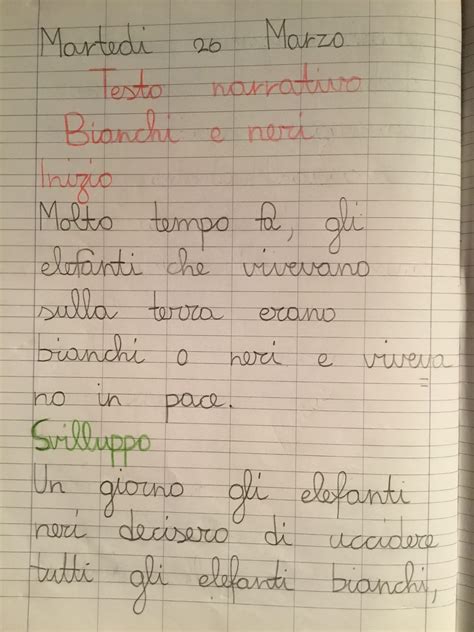 Martedi 26 Marzo
Testo narrativo
Bianchi e neri
Inizio
Molto tempo fa, gli
elefanti che vivevano
sulla terra erano
bianchi o neri e viveva
no in pace.
Svilluppo
Un giorno gli elefanti
neri decisero di uccidere
tutti gli elefanti bianchi,